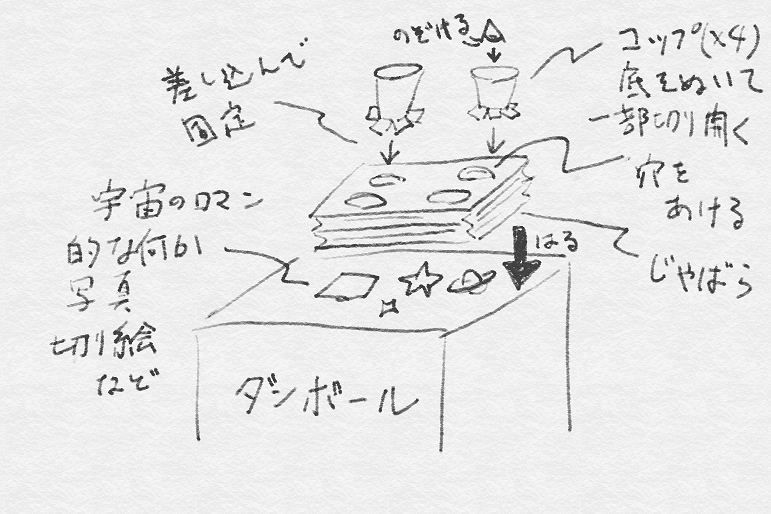 のぞける
コップ(×4)
底をぬいて
一部切り開く
差し込んで
固定
穴を
あける
宇宙のロマン
的な何か
写真
切り絵
など
はる
じゃばら
ダンボール